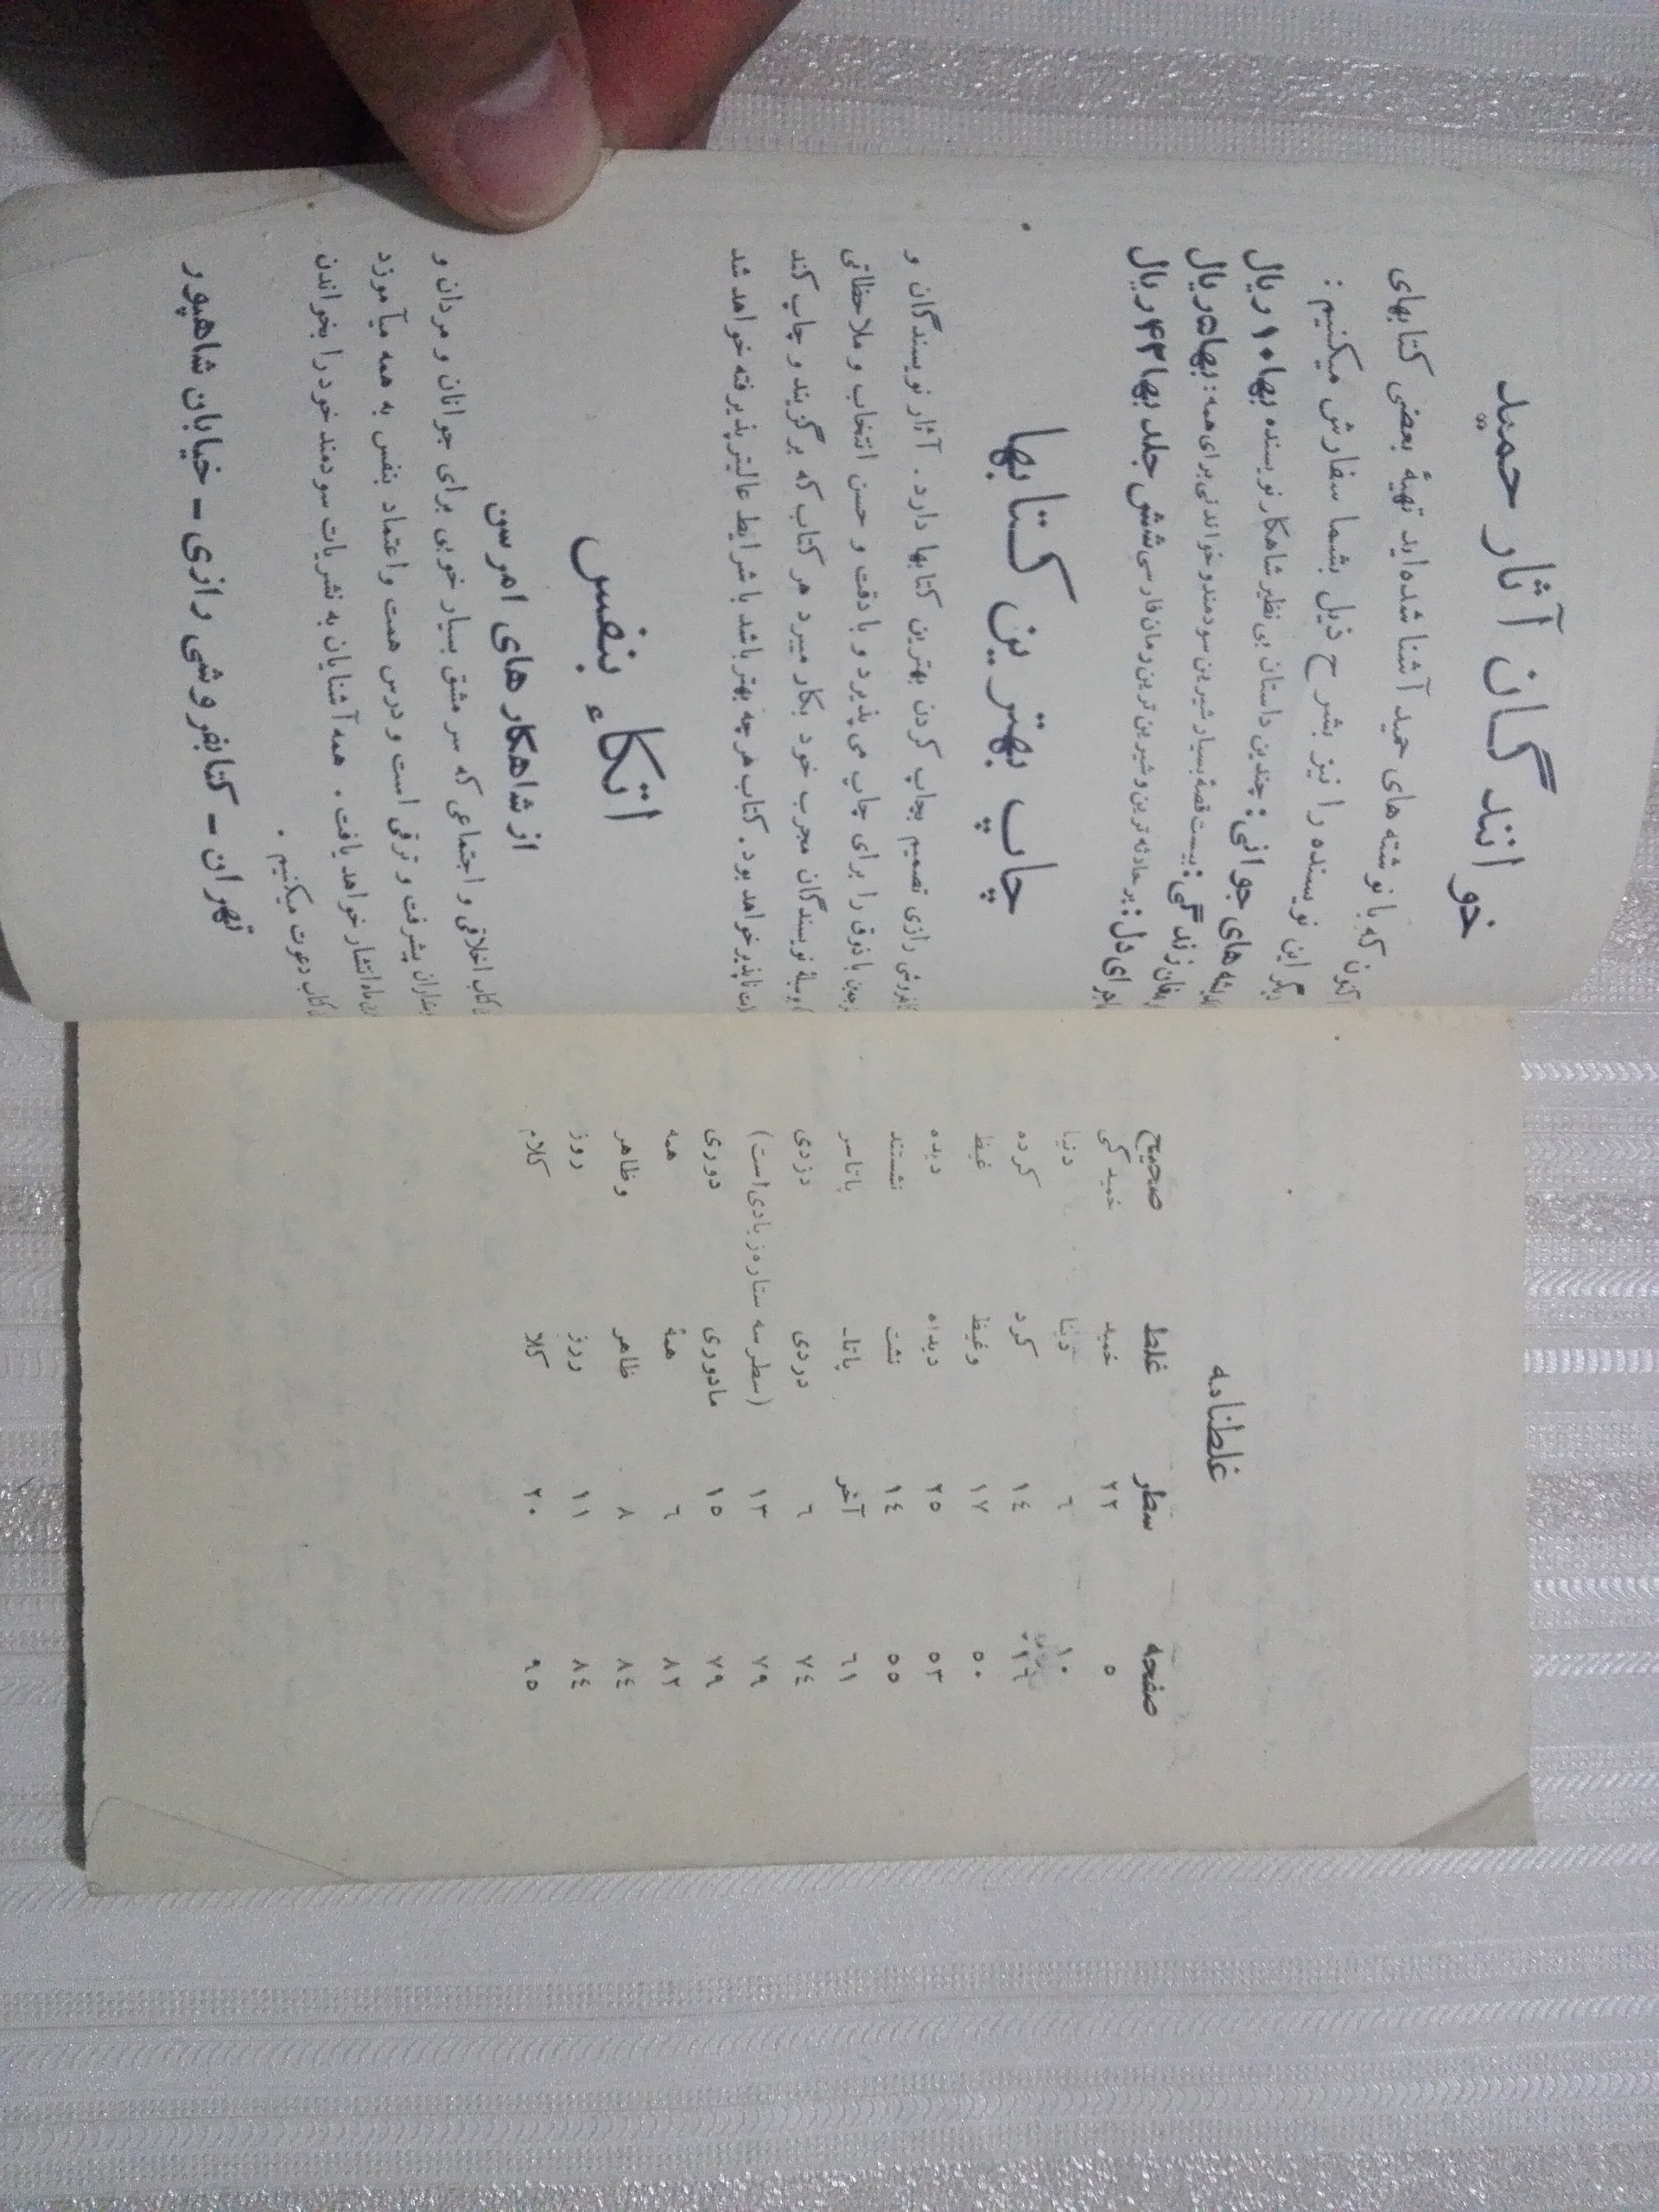 خوانندگان آثار حمید
اکنون که با نوشته های حمید آشنا شده‌اید تهیهٔ بعضی کتابهای
دیگر این نویسنده را نیز بشرح ذیل بشما سفارش میکنیم :
های جوانی : چندین داستان بی نظیر شاهکار نویسنده بها ۱۰ ریال
زندگی : بیست قصهٔ بسیار شیرین سودمند و خواندنی برای همه : بها ۵ ریال
ماجرای دل : پر حادثه ترین و شیرین ترین رمان فارسی شش جلد بها ۴۲ ریال
چاپ بهترین کتابها
کتابفروشی رازی تصمیم بچاپ کردن بهترین کتابها دارد . آثار نویسندگان و
مترجمین با ذوق را برای چاپ می پذیرد و با دقت و حسن انتخاب و ملاحظاتی
که بوسیلهٔ نویسندگان مجرب خود بکار میبرد هر کتاب که برگزیند و چاپ کند
ناپذیر خواهد بود . کتاب هر چه بهتر باشد با شرایط عالیتر پذیرفته خواهد شد
اتکاء بنفس
از شاهکار های امرسن
کتاب اخلاقی و اجتماعی که سر مشق بسیار خوبی برای جوانان و مردان و
پیشرفت و ترقی است و درس همت و اعتماد بنفس به همه میآموزد
ماه انتشار خواهد یافت . همه آشنایان به نشریات سودمند خود را بخواندن
کتاب دعوت میکنیم .
تهران ـ کتابفروشی رازی ـ خیابان شاهپور
غلطنامه
صفحه سطر غلط صحیح
۵ ۲۲ خمید خمیدگی
۱۰ ۶ دینا دنیا
۱۴ کرد کرده
۵۰ ۱۷ وغیظ غیظ
۵۳ ۲۵ دیداه دیده
۵۵ ۱۴ نشت نشستند
۶۱ آخر پاتاـ پاتاسر
۷۴ ۶ دردی دزدی
۷۹ ۱۳ (سطر سه ستاره زیادی است)
۷۹ ۱۵ مادوری دوری
۸۲ ۶ همهٔ همه
۸۴ ۸ ظاهر وظاهر
۸۴ ۱۱ ررز روز
۹۵ ۲۰ کلا کلام